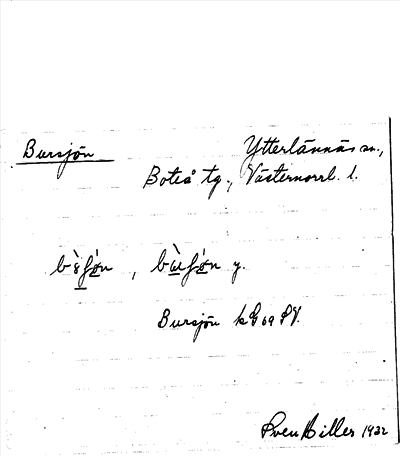 Bursjön Ytterlännäs sn.,
Boteå tg., Västernorrl. l.
y.
Bursjön kG 69 SV.
Sven Hiller 1932